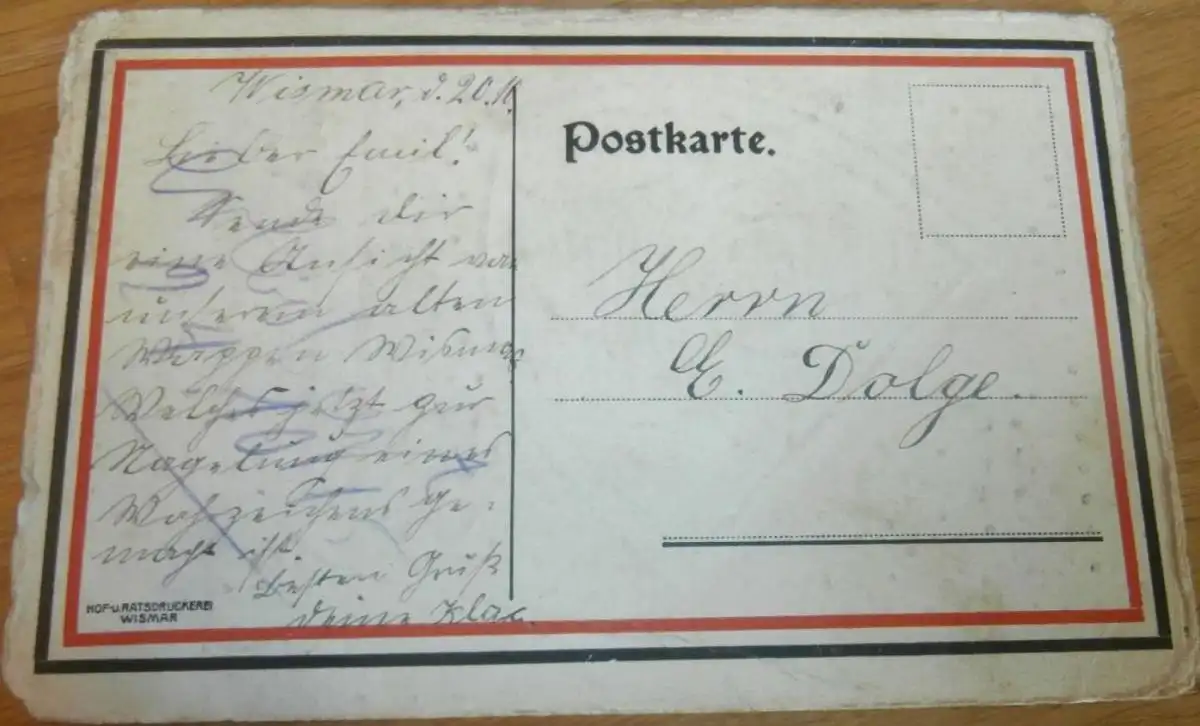 Wismar, d. 20.11
Lieber Emil!
Sende dir
eine Ansicht von
unserem alten
Wappen Wismar
Welches jetzt zur
Nagelung eines
Wahrzeichens ge-
macht ist.
Besten Gruß
deine
HOF-U.RATSDRUCKEREI
WISMAR
Postkarte.
Herrn
E. Dolge.